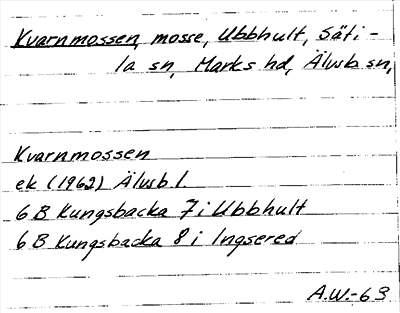 Kvarnmossen, mosse, Ubbhult, Säti-
la sn, Marks hd, Älvsb sn,
Kvarnmossen
ek (1962) Älvsb l.
6 B Kungsbacka 7 i Ubbhult
6 B Kungsbacka 8 i Ingsered
A.W.-63